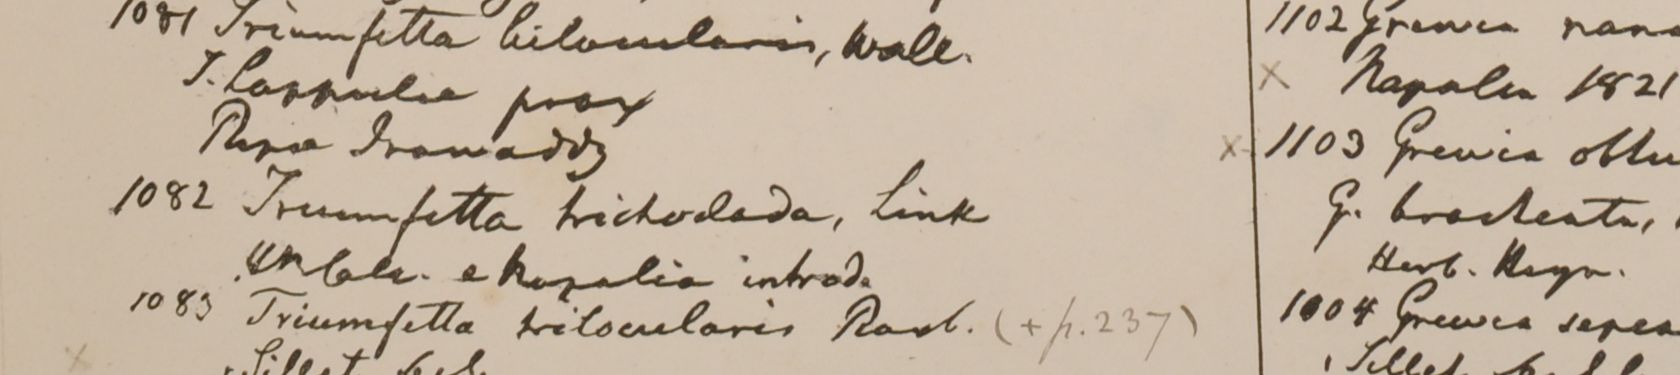 1081 Triumfetta bilocularis, Wall.
T. Lappulae prox
Ripa Irawaddy
1082 Triumfetta trichoclada, Link
HBCalc. e Napalia introd.
1083 Triumfetta trilocularis Roxb. (+ p. 237)
Sillet
1102 Grewia nana
x Napalia 1821
x 1103 Grewia obtu
G. bracteata,
Herb. Heyn.
1104 Grewia sepia
Sillet